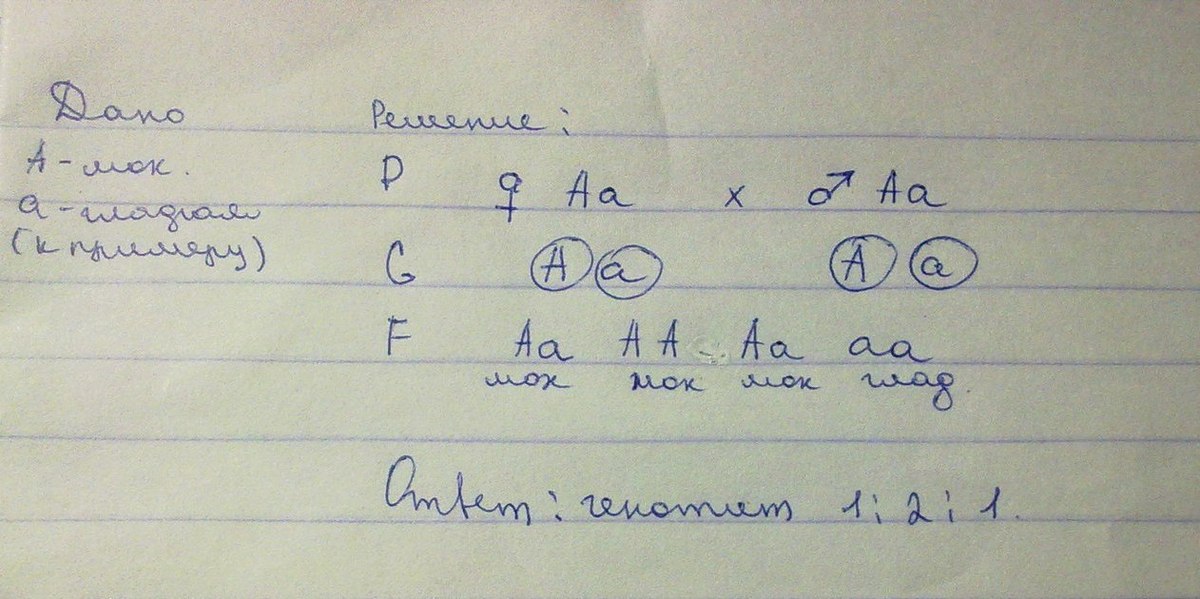 Дано
А - мох.
а - гладкая
(к примеру)
Решение:
P ♀ Aa x ♂ Aa
G A a A a
F Aa AA Aa aa
мох мох мох глад.
Ответ: генотип 1:2:1.